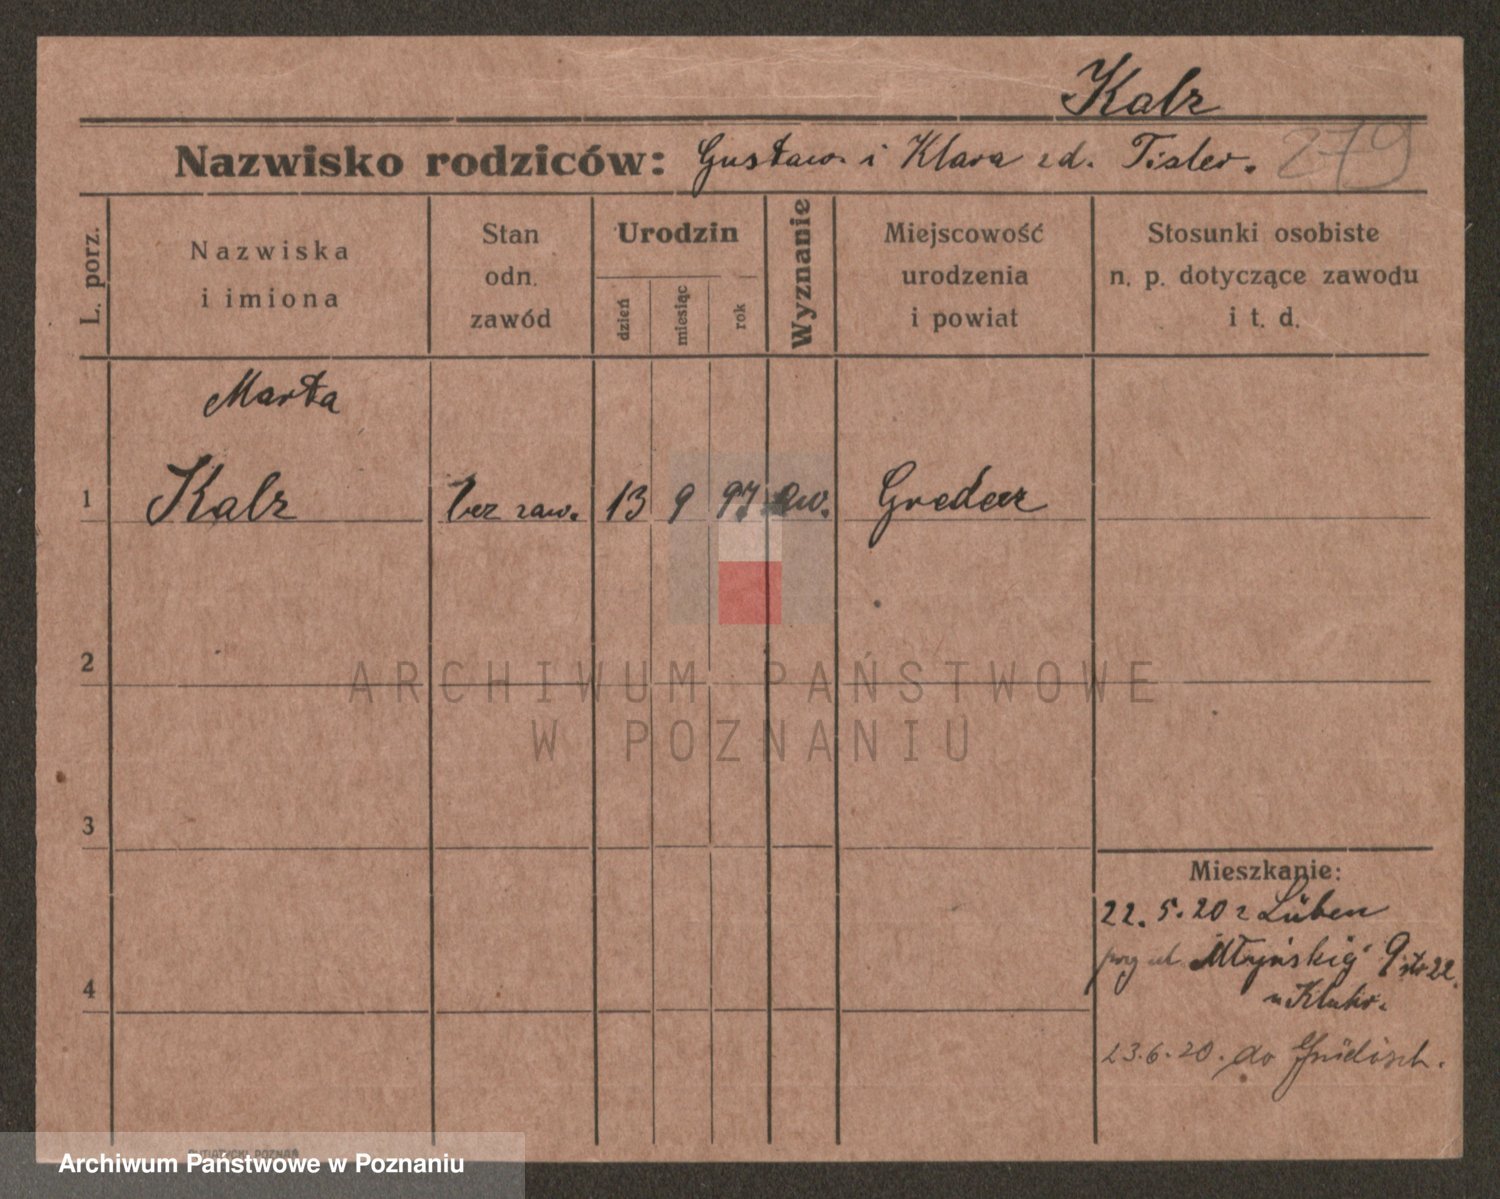 Kalz
Nazwisko rodziców: Gustaw i Klara zd. Tisler.
279
L. porz.
Nazwiska
i imiona
Stan
odn.
zawód
Urodzin
dzień
miesiąc
rok
Wyznanie
Miejscowość
urodzenia
i powiat
Stosunki osobiste
n. p. dotyczące zawodu
i t. d.
Marta
1 Kalz bez zaw. 13 9 97. ew.
2
3
4
Mieszkanie:
22. 5. 20 z Lüben
Młyńskiej 9 22.
u
23.6.20. do
ARCHIWUM PAŃSTWOWE
W POZNANIU
Archiwum Państwowe w Poznaniu